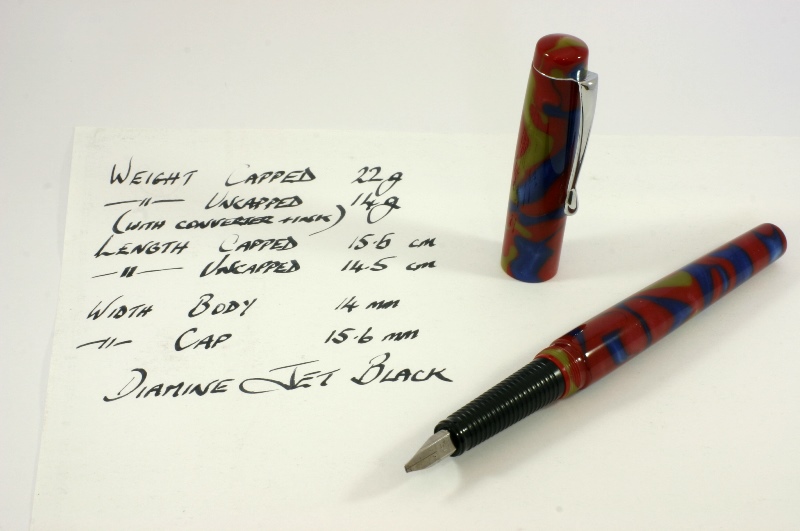 WEIGHT CAPPED 22g
—"— UNCAPPED 14g
(WITH CONVERTER + INK)
LENGTH CAPPED 15.6 cm
—"— UNCAPPED 14.5 cm
WIDTH BODY 14 mm
—"— CAP 15.6 mm
DIAMINE JET BLACK